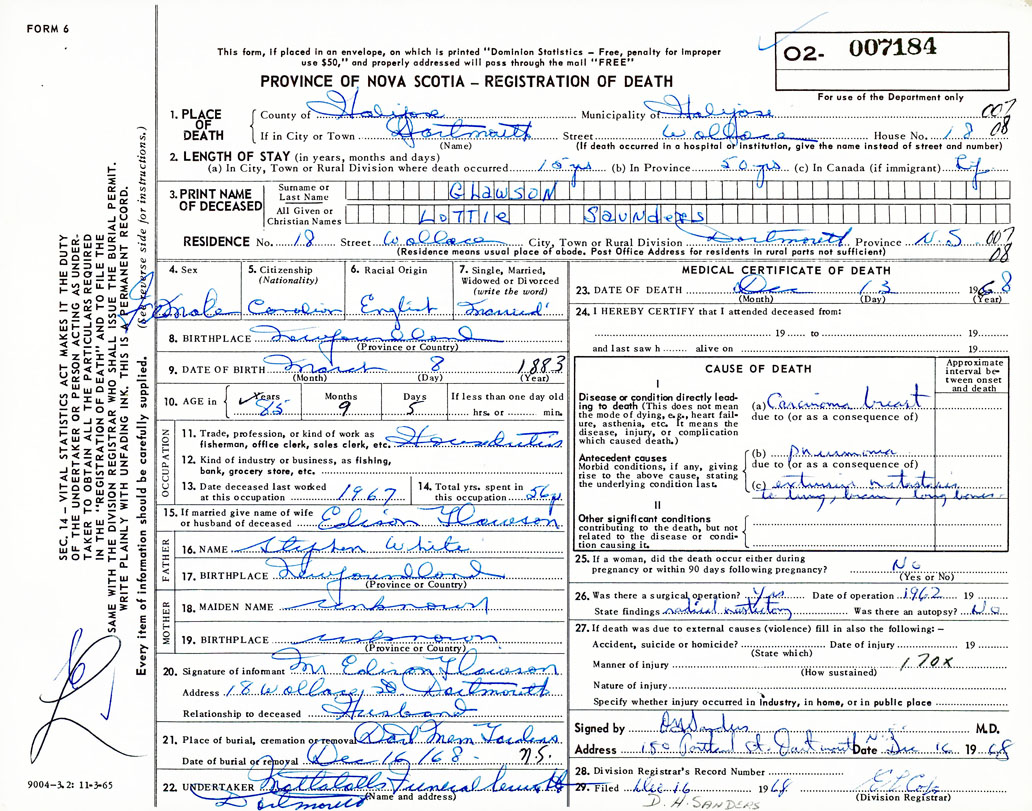 FORM 6
This form, if placed in an envelope, on which is printed "Dominion Statistics – Free, penalty for improper
use $50," and properly addressed will pass through the mail "FREE"
O2- 007184
PROVINCE OF NOVA SCOTIA – REGISTRATION OF DEATH
For use of the Department only
1. PLACE OF DEATH County of Halifax Municipality of Halifax 007
If in City or Town Dartmouth Street Wallace House No. 18 08
(Name) (If death occurred in a hospital or institution, give the name instead of street and number)
2. LENGTH OF STAY (in years, months and days)
(a) In City, Town or Rural Division where death occurred 15 yrs (b) In Province 50 yrs (c) In Canada (if immigrant)
3. PRINT NAME OF DECEASED Surname or Last Name GLAWSON
All Given or Christian Names LOTTIE SAUNDERS
RESIDENCE No. 18 Street Wallace City, Town or Rural Division Dartmouth Province N.S. 007
(Residence means usual place of abode. Post Office Address for residents in rural parts not sufficient) 08
4. Sex Female
5. Citizenship (Nationality) Canadian
6. Racial Origin English
7. Single, Married, Widowed or Divorced (write the word) Married
8. BIRTHPLACE Newfoundland
(Province or Country)
9. DATE OF BIRTH March 8 1883
(Month) (Day) (Year)
10. AGE in Years 85 Months 9 Days 5 If less than one day old
hrs. or min.
OCCUPATION
11. Trade, profession, or kind of work as
fisherman, office clerk, sales clerk, etc. Housduties
12. Kind of industry or business, as fishing,
bank, grocery store, etc.
13. Date deceased last worked
at this occupation 1967
14. Total yrs. spent in
this occupation 50 y
15. If married give name of wife
or husband of deceased Edison Glawson
FATHER
16. NAME Stephen White
17. BIRTHPLACE Newfoundland
(Province or Country)
MOTHER
18. MAIDEN NAME unknown
19. BIRTHPLACE unknown
(Province or Country)
20. Signature of informant Mr. Edison Glawson
Address 18 Wallace St Dartmouth
Relationship to deceased Husband
21. Place of burial, cremation or removal Dart Mem Gardens
Date of burial or removal Dec 16 68 N.S.
22. UNDERTAKER Mattatalls Funeral
(Name and address)
Dartmouth
MEDICAL CERTIFICATE OF DEATH
23. DATE OF DEATH Dec 13 1968
(Month) (Day) (Year)
24. I HEREBY CERTIFY that I attended deceased from:
19 to 19
and last saw h alive on 19
CAUSE OF DEATH
Approximate interval between onset and death
I
Disease or condition directly leading to death (This does not mean the mode of dying, e.g., heart failure, asthenia, etc. It means the disease, injury, or complication which caused death.)
(a) Carcinoma breast
due to (or as a consequence of)
Antecedent causes
Morbid conditions, if any, giving rise to the above cause, stating the underlying condition last.
(b) pneumonia
due to (or as a consequence of)
(c) extensive metastases
to lung, brain, long bones
II
Other significant conditions
contributing to the death, but not related to the disease or condition causing it.
25. If a woman, did the death occur either during
pregnancy or within 90 days following pregnancy? No
(Yes or No)
26. Was there a surgical operation? Yes Date of operation 1962 19
State findings radical mastectomy Was there an autopsy? No
27. If death was due to external causes (violence) fill in also the following: –
Accident, suicide or homicide? Date of injury 19
(State which)
Manner of injury 170X
(How sustained)
Nature of injury
Specify whether injury occurred in industry, in home, or in public place
Signed by DH Sanders M.D.
Address 150 Portland St. Dartmouth N.S. Date Dec 16 1968
28. Division Registrar's Record Number
29. Filed Dec 16 1968
(Division Registrar)
D. H. SANDERS
SEC. 14 – VITAL STATISTICS ACT MAKES IT THE DUTY
OF THE UNDERTAKER OR PERSON ACTING AS UNDER-
TAKER TO OBTAIN ALL THE PARTICULARS REQUIRED
IN THE "REGISTRATION OF DEATH" AND TO FILE THE
SAME WITH THE DIVISION REGISTRAR WHO SHALL ISSUE THE BURIAL PERMIT.
WRITE PLAINLY WITH UNFADING INK. THIS IS A PERMANENT RECORD.
Every item of information should be carefully supplied. (See reverse side for instructions.)
9004-3.2: 11-3-65